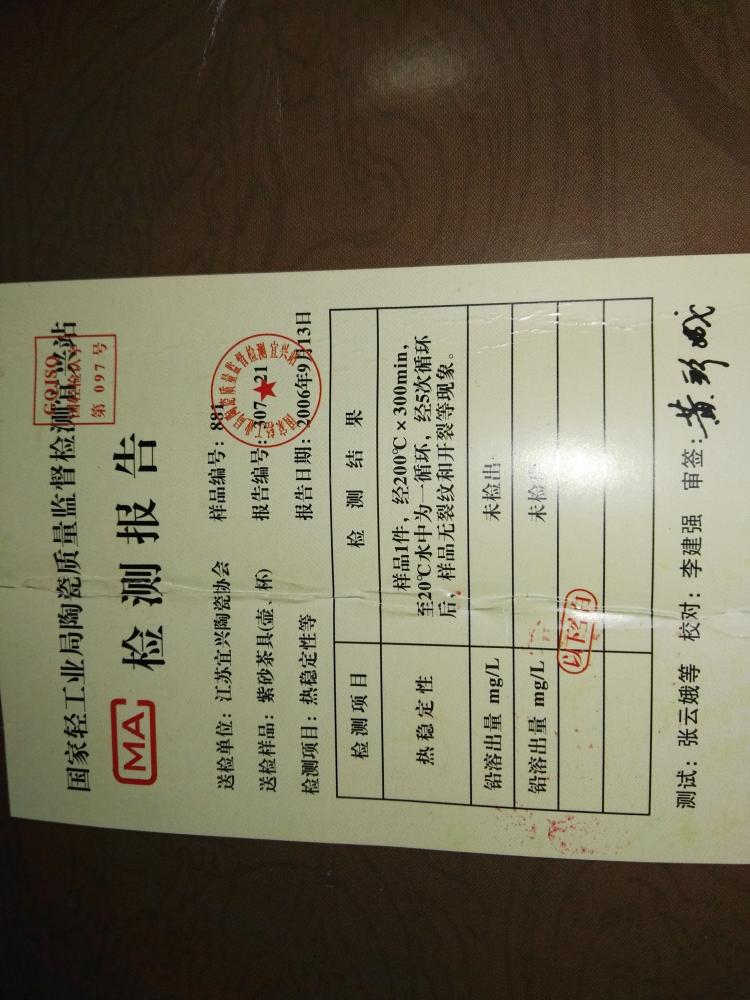 国家轻工业局陶瓷质量监督检测宜兴站
CQJSO
第 097 号
MA
检测报告
送检单位：江苏宜兴陶瓷协会
样品编号：881
送检样品：紫砂茶具(壶、杯)
报告编号：307 21
检测项目：热稳定性等
报告日期：2006年9月13日
国家轻工业局陶瓷质量监督检测宜兴站
检测项目
检 测 结 果
热 稳 定 性
样品1件，经200℃×300min，
至20℃水中为一循环，经5次循环
后，样品无裂纹和开裂等现象。
铅溶出量 mg/L
未检出
铅溶出量 mg/L
未检
以下空白
测试：张云娥等 校对：李建强 审签：